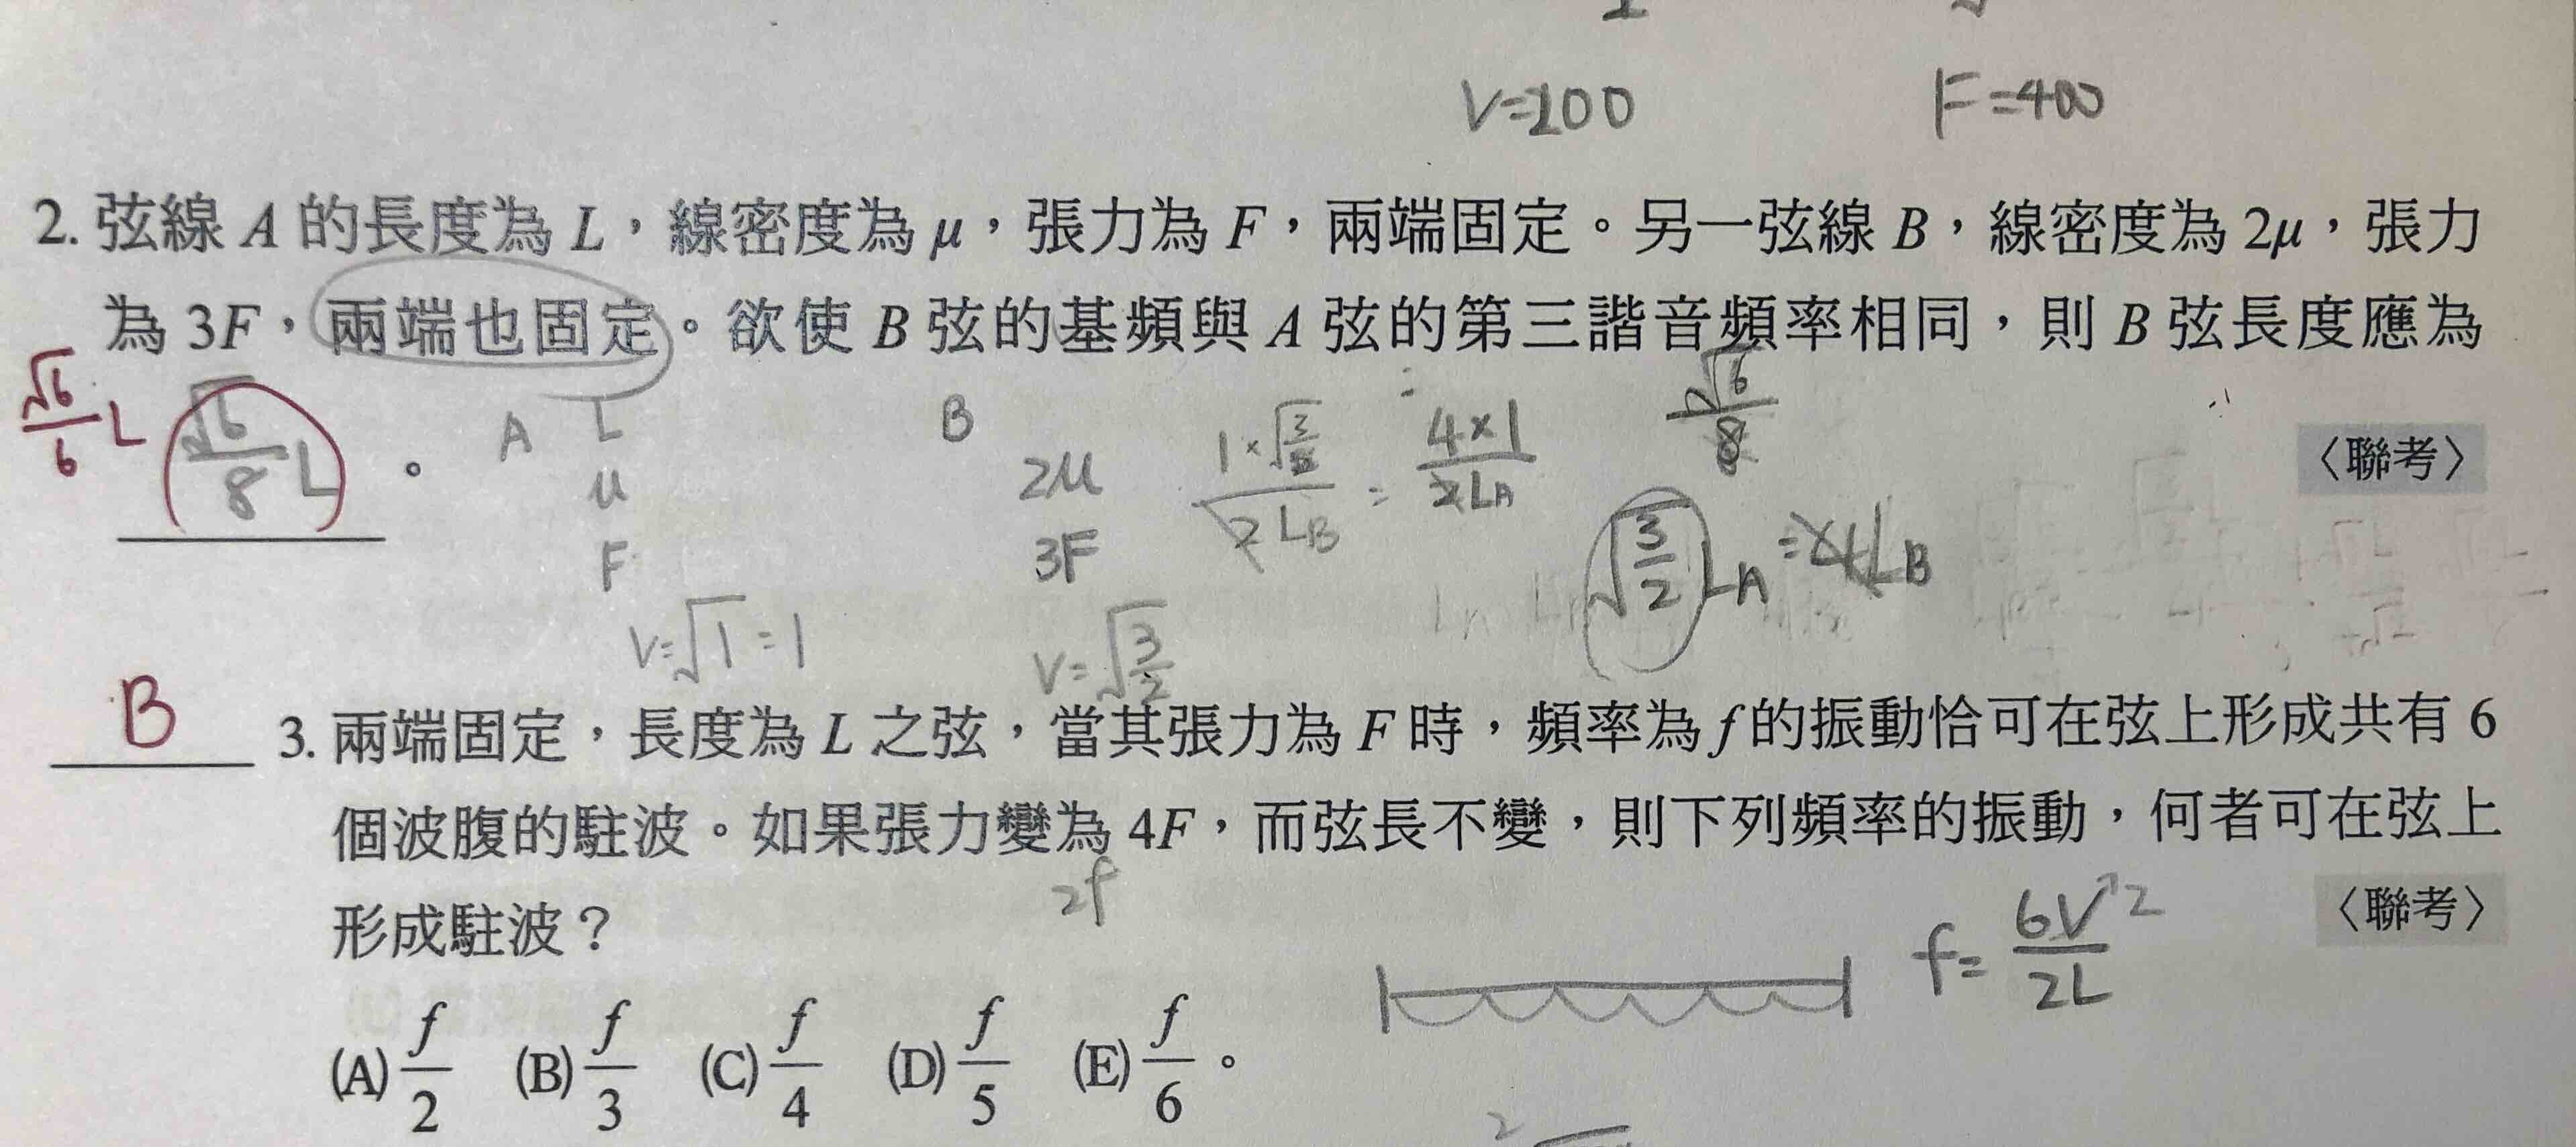 V=200 F=400
2. 弦線 A 的長度為 L，線密度為 μ，張力為 F，兩端固定。另一弦線 B，線密度為 2μ，張力
為 3F，兩端也固定。欲使 B 弦的基頻與 A 弦的第三諧音頻率相同，則 B 弦長度應為
√6/6 L √6/8 L 。 〈聯考〉
A L B 1×√(3/2)/2LB = 4×1/2LA √6/8
μ 2μ
F 3F √(3/2) LA = 4LB
V=√1=1 V=√(3/2)
B 3. 兩端固定，長度為 L 之弦，當其張力為 F 時，頻率為 f 的振動恰可在弦上形成共有 6
個波腹的駐波。如果張力變為 4F，而弦長不變，則下列頻率的振動，何者可在弦上
2f
形成駐波？ 〈聯考〉
f=6V/2L 2
(A) f/2 (B) f/3 (C) f/4 (D) f/5 (E) f/6。